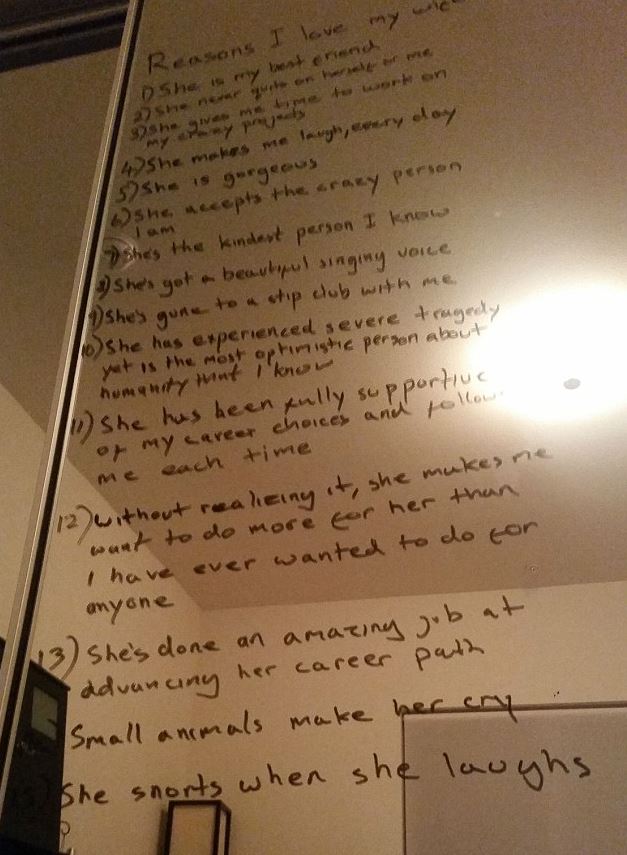 Reasons I love my
1) She is my best friend
2) She never quits on herself or me
3) She gives me time to work on
my crazy projects
4) She makes me laugh, every day
5) She is gorgeous
6) She accepts the crazy person
I am
7) She's the kindest person I know
8) She's got a beautiful singing voice
9) She's gone to a stip club with me
10) She has experienced severe tragedy
yet is the most optimistic person about
humanity that I know
11) She has been fully supportive
of my career choices and follow
me each time
12) Without realizing it, she makes me
want to do more for her than
I have ever wanted to do for
anyone
13) She's done an amazing job at
advancing her career path
Small animals make her cry
She snorts when she laughs